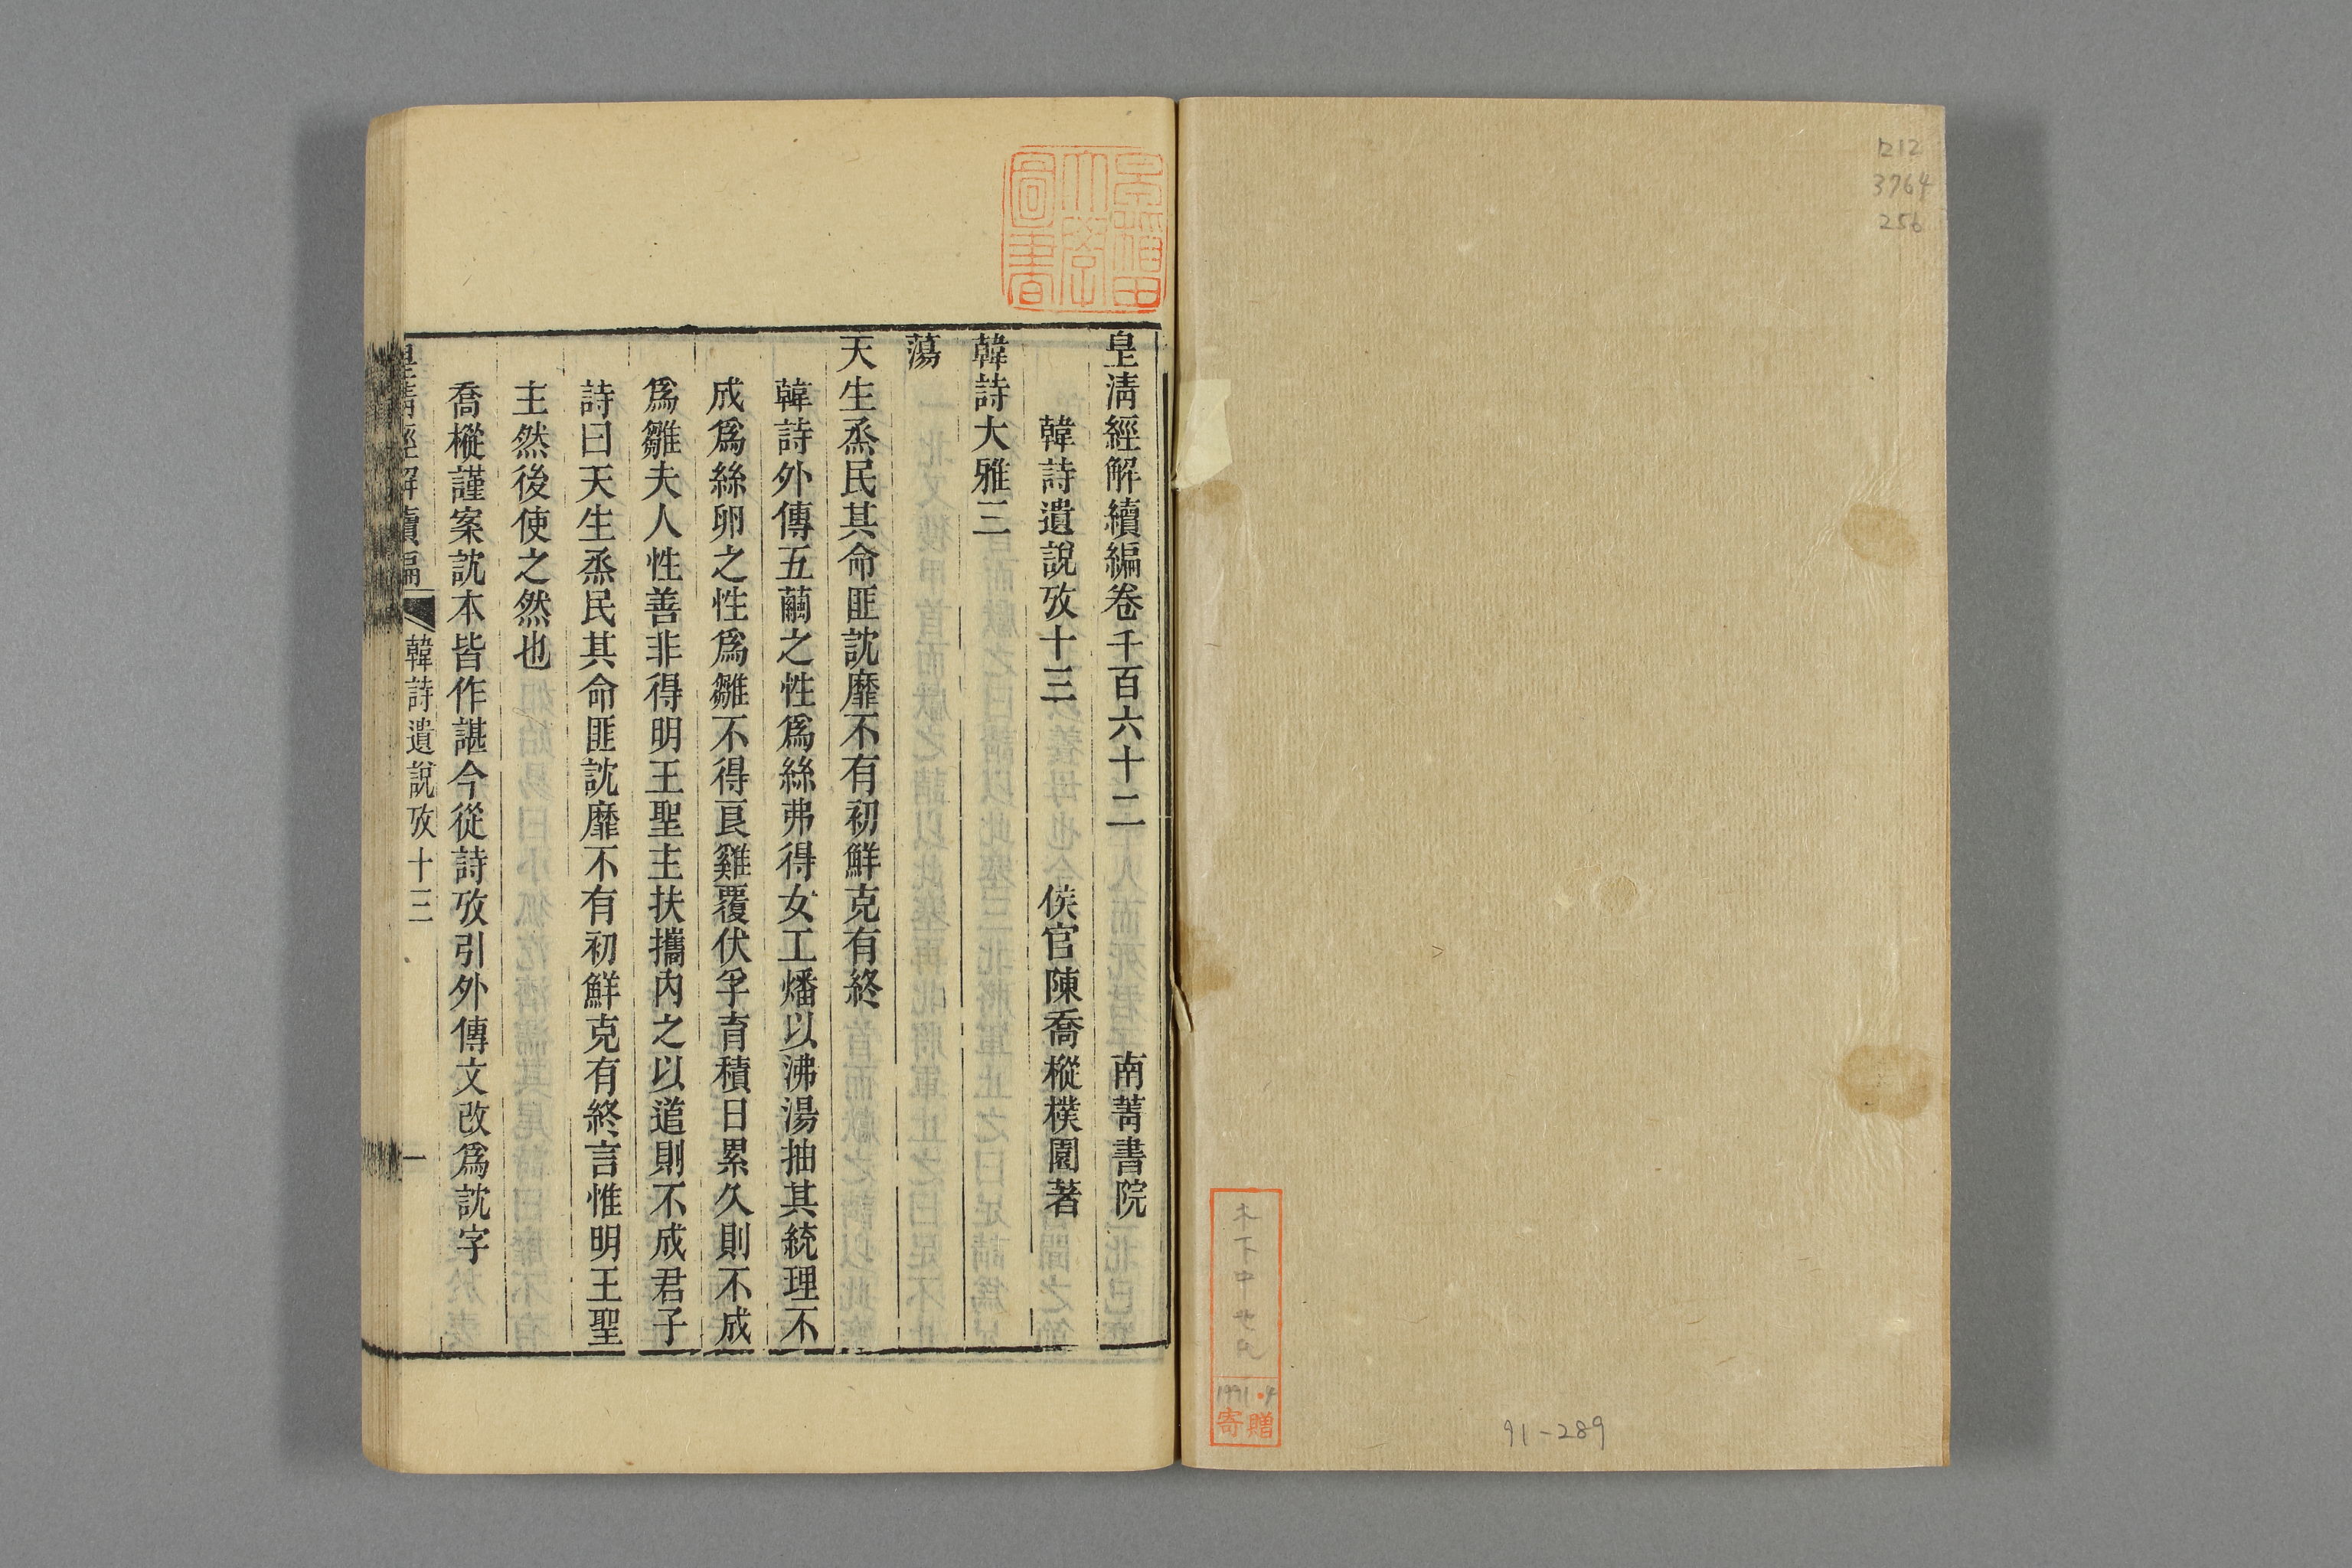 ロ212
3764
256
1991.4
寄贈
91-289
早稲田
大學
圖書
皇淸經解續編卷千百六十二　南菁書院
韓詩遺說攷十三　侯官陳喬樅樸園著
韓詩大雅三
蕩
天生烝民其命匪訦靡不有初鮮克有終
韓詩外傳五繭之性爲絲弗得女工燔以沸湯抽其統理不
成爲絲卵之性爲雛不得良雞覆伏孚育積日累久則不成
爲雛夫人性善非得明王聖主扶攜內之以道則不成君子
詩曰天生烝民其命匪訦靡不有初鮮克有終言惟明王聖
主然後使之然也
喬樅謹案訦本皆作諶今從詩攷引外傳文改爲訦字
皇淸經解續編　韓詩遺說攷十三　一